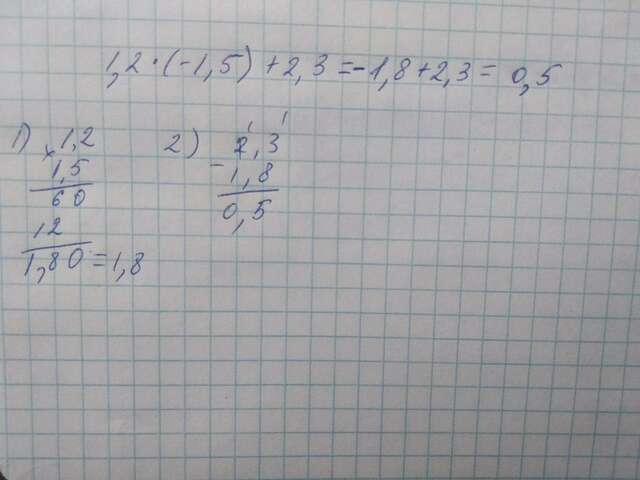 1,2·(-1,5)+2,3=-1,8+2,3=0,5
1) ×1,2
1,5
60
12
1,80=1,8
2) 2,3
-1,8
0,5